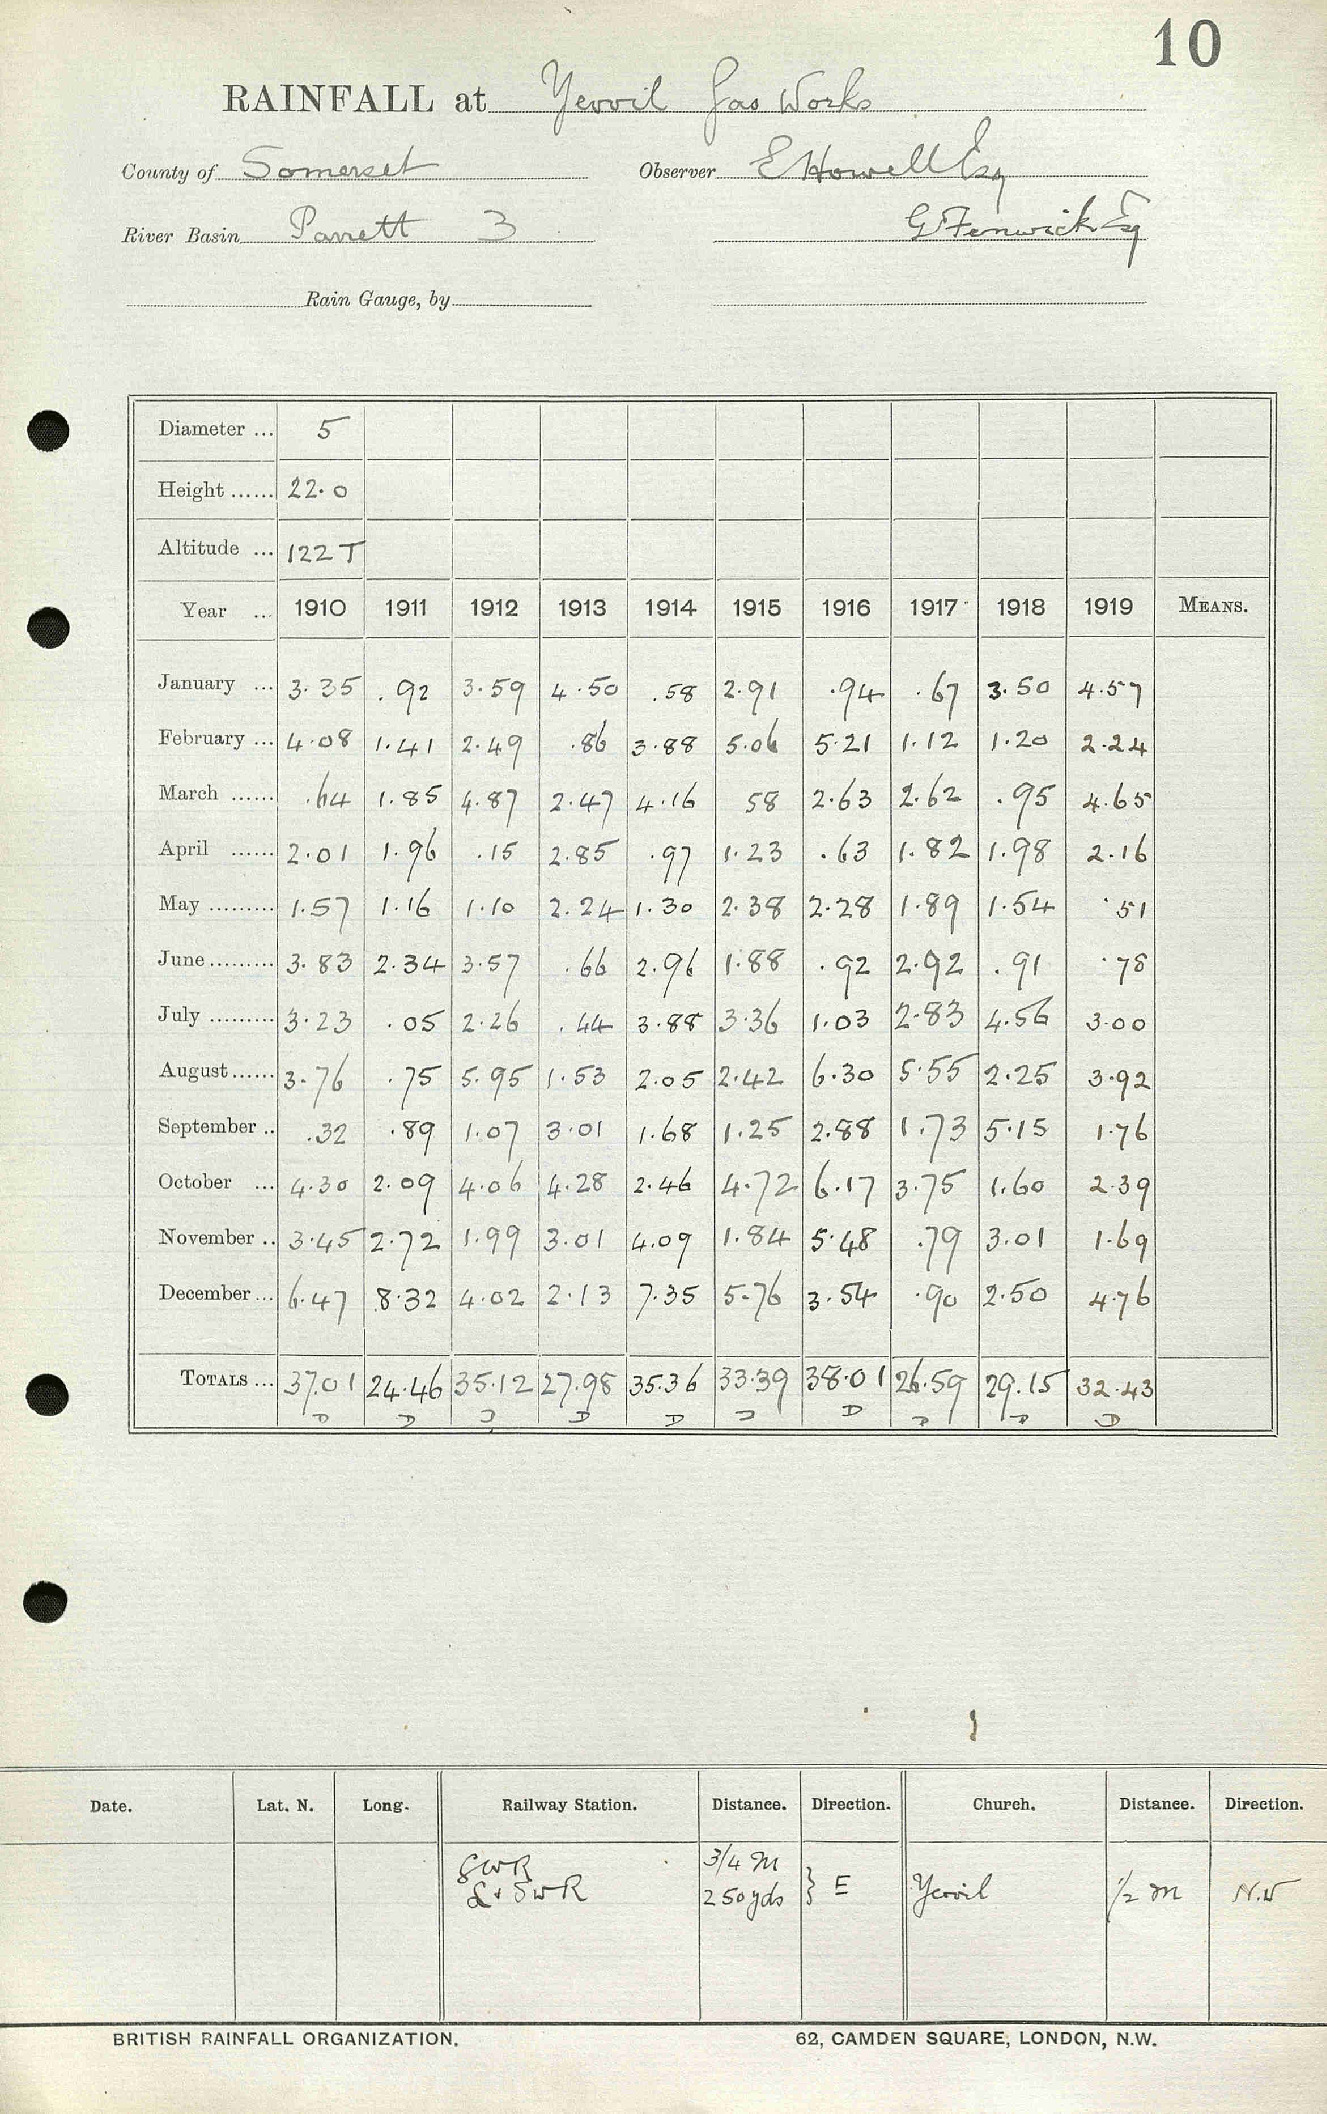 10
RAINFALL at Yeovil Gas Works
County of Somerset Observer E Howell Esq
River Basin Parrett 3 G Fenwick Esq
Rain Gauge, by
Diameter ... 5
Height ...... 22.0
Altitude ... 122 T
Year ... 1910 1911 1912 1913 1914 1915 1916 1917 1918 1919 MEANS.
January ... 3.35 .92 3.59 4.50 .58 2.91 .94 .67 3.50 4.57
February ... 4.08 1.41 2.49 .86 3.88 5.06 5.21 1.12 1.20 2.24
March ...... .64 1.85 4.87 2.47 4.16 58 2.63 2.62 .95 4.65
April ...... 2.01 1.96 .15 2.85 .97 1.23 .63 1.82 1.98 2.16
May ......... 1.57 1.16 1.10 2.24 1.30 2.38 2.28 1.89 1.54 .51
June ......... 3.83 2.34 3.57 .66 2.96 1.88 .92 2.92 .91 .78
July ......... 3.23 .05 2.26 .44 3.88 3.36 1.03 2.83 4.56 3.00
August ...... 3.76 .75 5.95 1.53 2.05 2.42 6.30 5.55 2.25 3.92
September .. .32 .89 1.07 3.01 1.68 1.25 2.88 1.73 5.15 1.76
October ... 4.30 2.09 4.06 4.28 2.46 4.72 6.17 3.75 1.60 2.39
November .. 3.45 2.72 1.99 3.01 4.09 1.84 5.48 .79 3.01 1.69
December ... 6.47 8.32 4.02 2.13 7.35 5.76 3.54 .90 2.50 4.76
TOTALS ... 37.01 24.46 35.12 27.98 35.36 33.39 38.01 26.59 29.15 32.43
D D D D D D D D D D
Date. Lat. N. Long. Railway Station. Distance. Direction. Church. Distance. Direction.
GWR 3/4 m
L & SWR 250 yds } E Yeovil 1/2 m N.W
BRITISH RAINFALL ORGANIZATION. 62, CAMDEN SQUARE, LONDON, N.W.